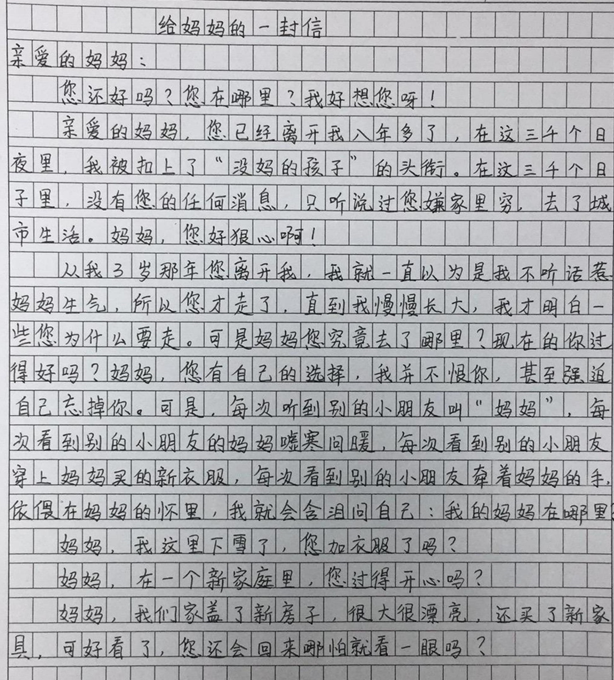 给妈妈的一封信
亲爱的妈妈：
您还好吗？您在哪里？我好想您呀！
亲爱的妈妈，您已经离开我八年多了，在这三千个日
夜里，我被扣上了“没妈的孩子”的头衔。在这三千个日
子里，没有您的任何消息，只听说过您嫌家里穷，去了城
市生活。妈妈，您好狠心啊！
从我3岁那年您离开我，我就一直以为是我不听话惹
妈妈生气，所以您才走了，直到我慢慢长大，我才明白一
些您为什么要走。可是妈妈您究竟去了哪里？现在的你过
得好吗？妈妈，您有自己的选择，我并不恨你，甚至强迫
自己忘掉你。可是，每次听到别的小朋友叫“妈妈”，每
次看到别的小朋友的妈妈嘘寒问暖，每次看到别的小朋友
穿上妈妈买的新衣服，每次看到别的小朋友牵着妈妈的手，
依偎在妈妈的怀里，我就会含泪问自己：我的妈妈在哪里？
妈妈，我这里下雪了，您加衣服了吗？
妈妈，在一个新家庭里，您过得开心吗？
妈妈，我们家盖了新房子，很大很漂亮，还买了新家
具，可好看了，您还会回来哪怕就看一眼吗？